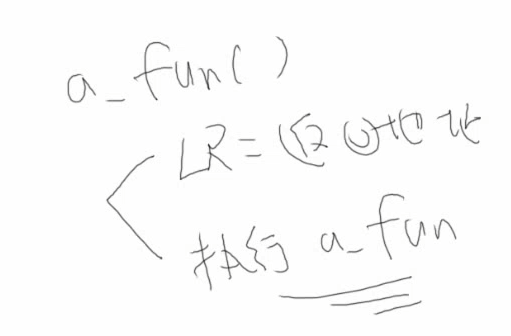 a_fun()
LR=返回地址
执行 a_fun